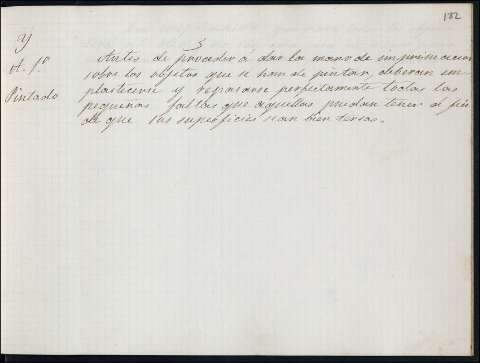 182
y
A. 1º
Pintado
3
Antes de proceder á dar la mano de imprimacion
sobre los objetos que se han de pintar, deberán em-
plastecerse y repasarse perfectamente todas las
pequeñas faltas que aquellos puedan tener á fin
de que sus superficies sean bien tersas.